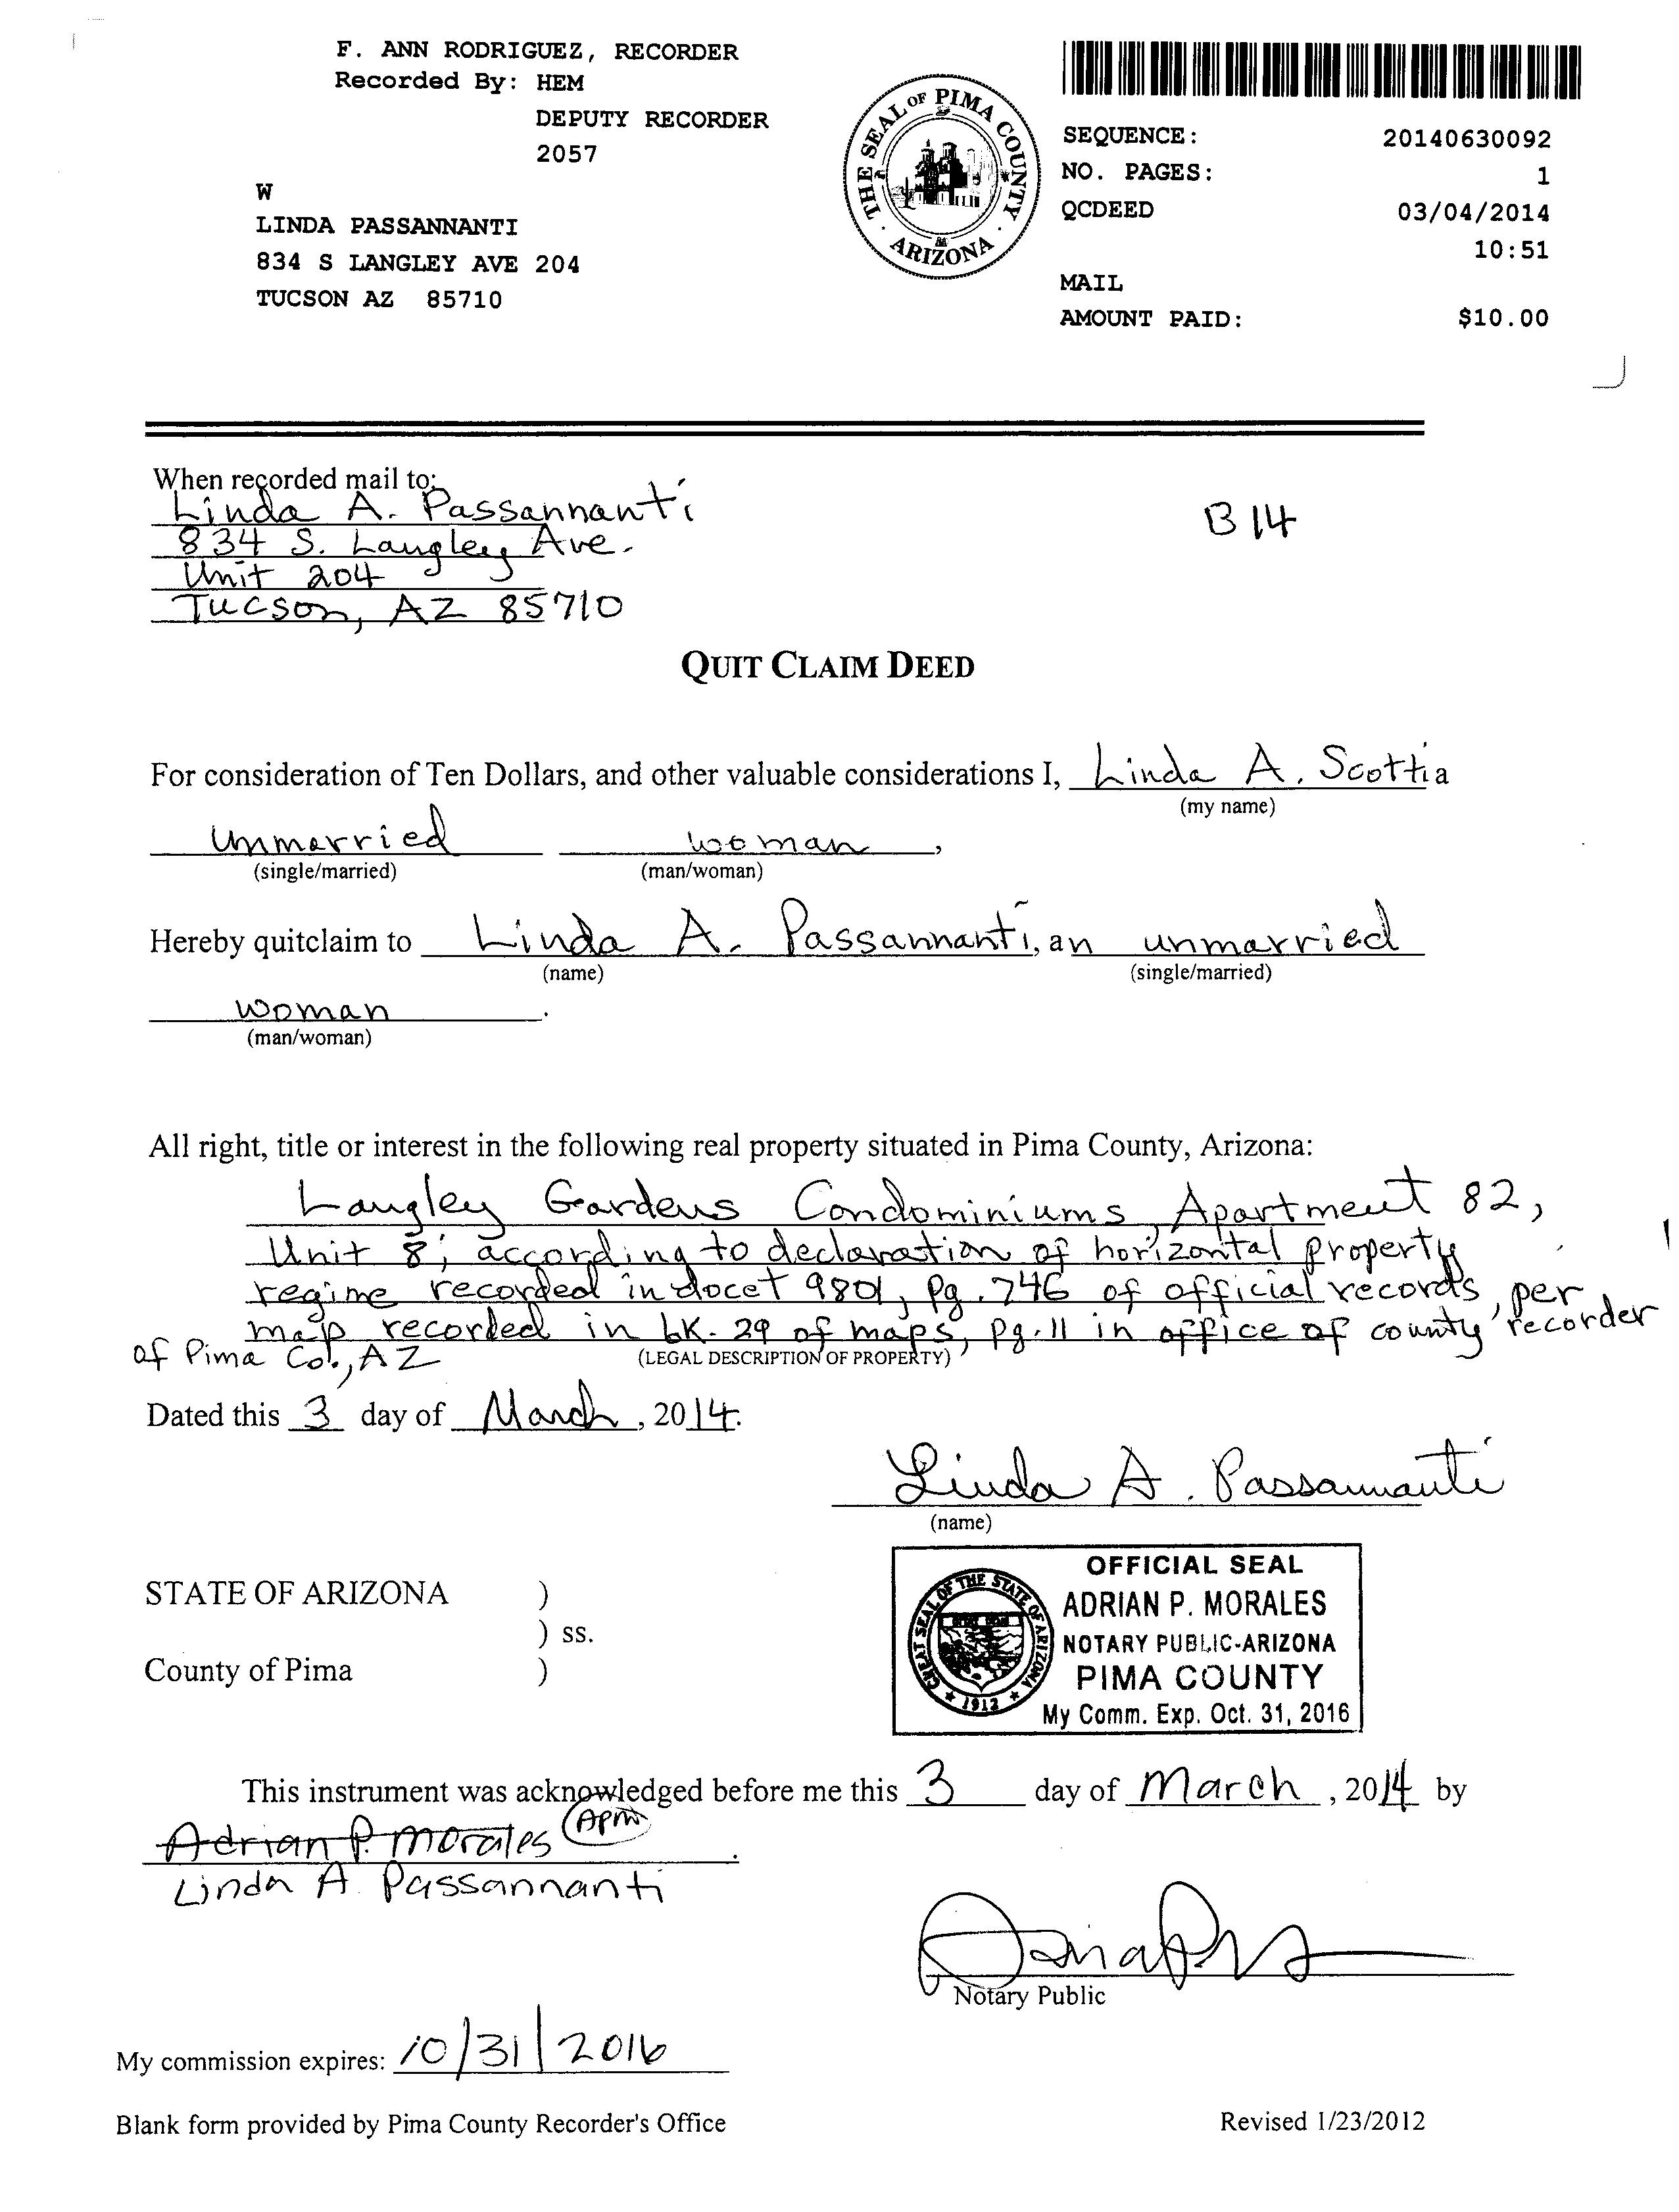 F. ANN RODRIGUEZ, RECORDER
Recorded By: HEM
DEPUTY RECORDER
2057
W
LINDA PASSANNANTI
834 S LANGLEY AVE 204
TUCSON AZ 85710
THE SEAL OF PIMA COUNTY
ARIZONA
SEQUENCE: 20140630092
NO. PAGES: 1
QCDEED 03/04/2014
10:51
MAIL
AMOUNT PAID: $10.00
When recorded mail to:
Linda A. Passannanti
834 S. Langley Ave.
Unit 204
Tucson, AZ 85710
B 14
QUIT CLAIM DEED
For consideration of Ten Dollars, and other valuable considerations I, Linda A. Scotti a
(my name)
unmarried woman,
(single/married) (man/woman)
Hereby quitclaim to Linda A. Passannanti, an unmarried
(name) (single/married)
woman.
(man/woman)
All right, title or interest in the following real property situated in Pima County, Arizona:
Langley Gardens Condominiums, Apartment 82,
Unit 8; according to declaration of horizontal property
regime recorded in docet 9801, pg. 746 of official records, per
map recorded in bk. 29 of maps, pg. 11 in office of county recorder
of Pima Co., AZ
(LEGAL DESCRIPTION OF PROPERTY)
Dated this 3 day of March, 2014.
Linda A. Passannanti
(name)
STATE OF ARIZONA )
) ss.
County of Pima )
GREAT SEAL OF THE STATE OF ARIZONA
1912
OFFICIAL SEAL
ADRIAN P. MORALES
NOTARY PUBLIC-ARIZONA
PIMA COUNTY
My Comm. Exp. Oct. 31, 2016
This instrument was acknowledged before me this 3 day of March, 2014 by
Adrian P. Morales APM.
Linda A Passannanti
Notary Public
My commission expires: 10/31/2016
Blank form provided by Pima County Recorder's Office
Revised 1/23/2012